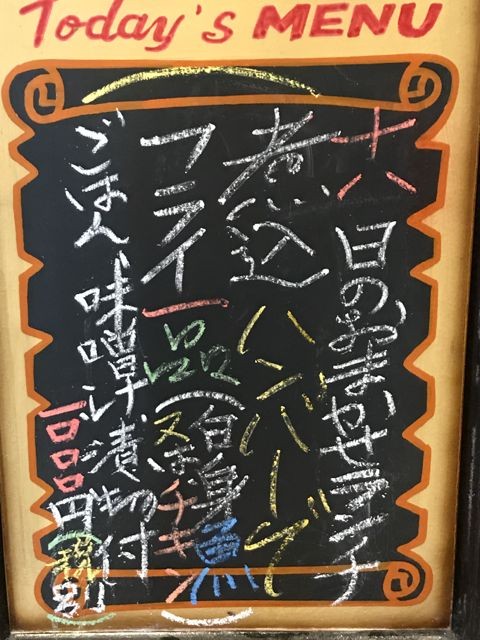 Today's MENU
十八日のおまかせランチ
煮込ハンバーグ
フライ一品(白身魚又はチキン)
ごはん、味噌汁、漬物付
一〇〇〇円(税別)